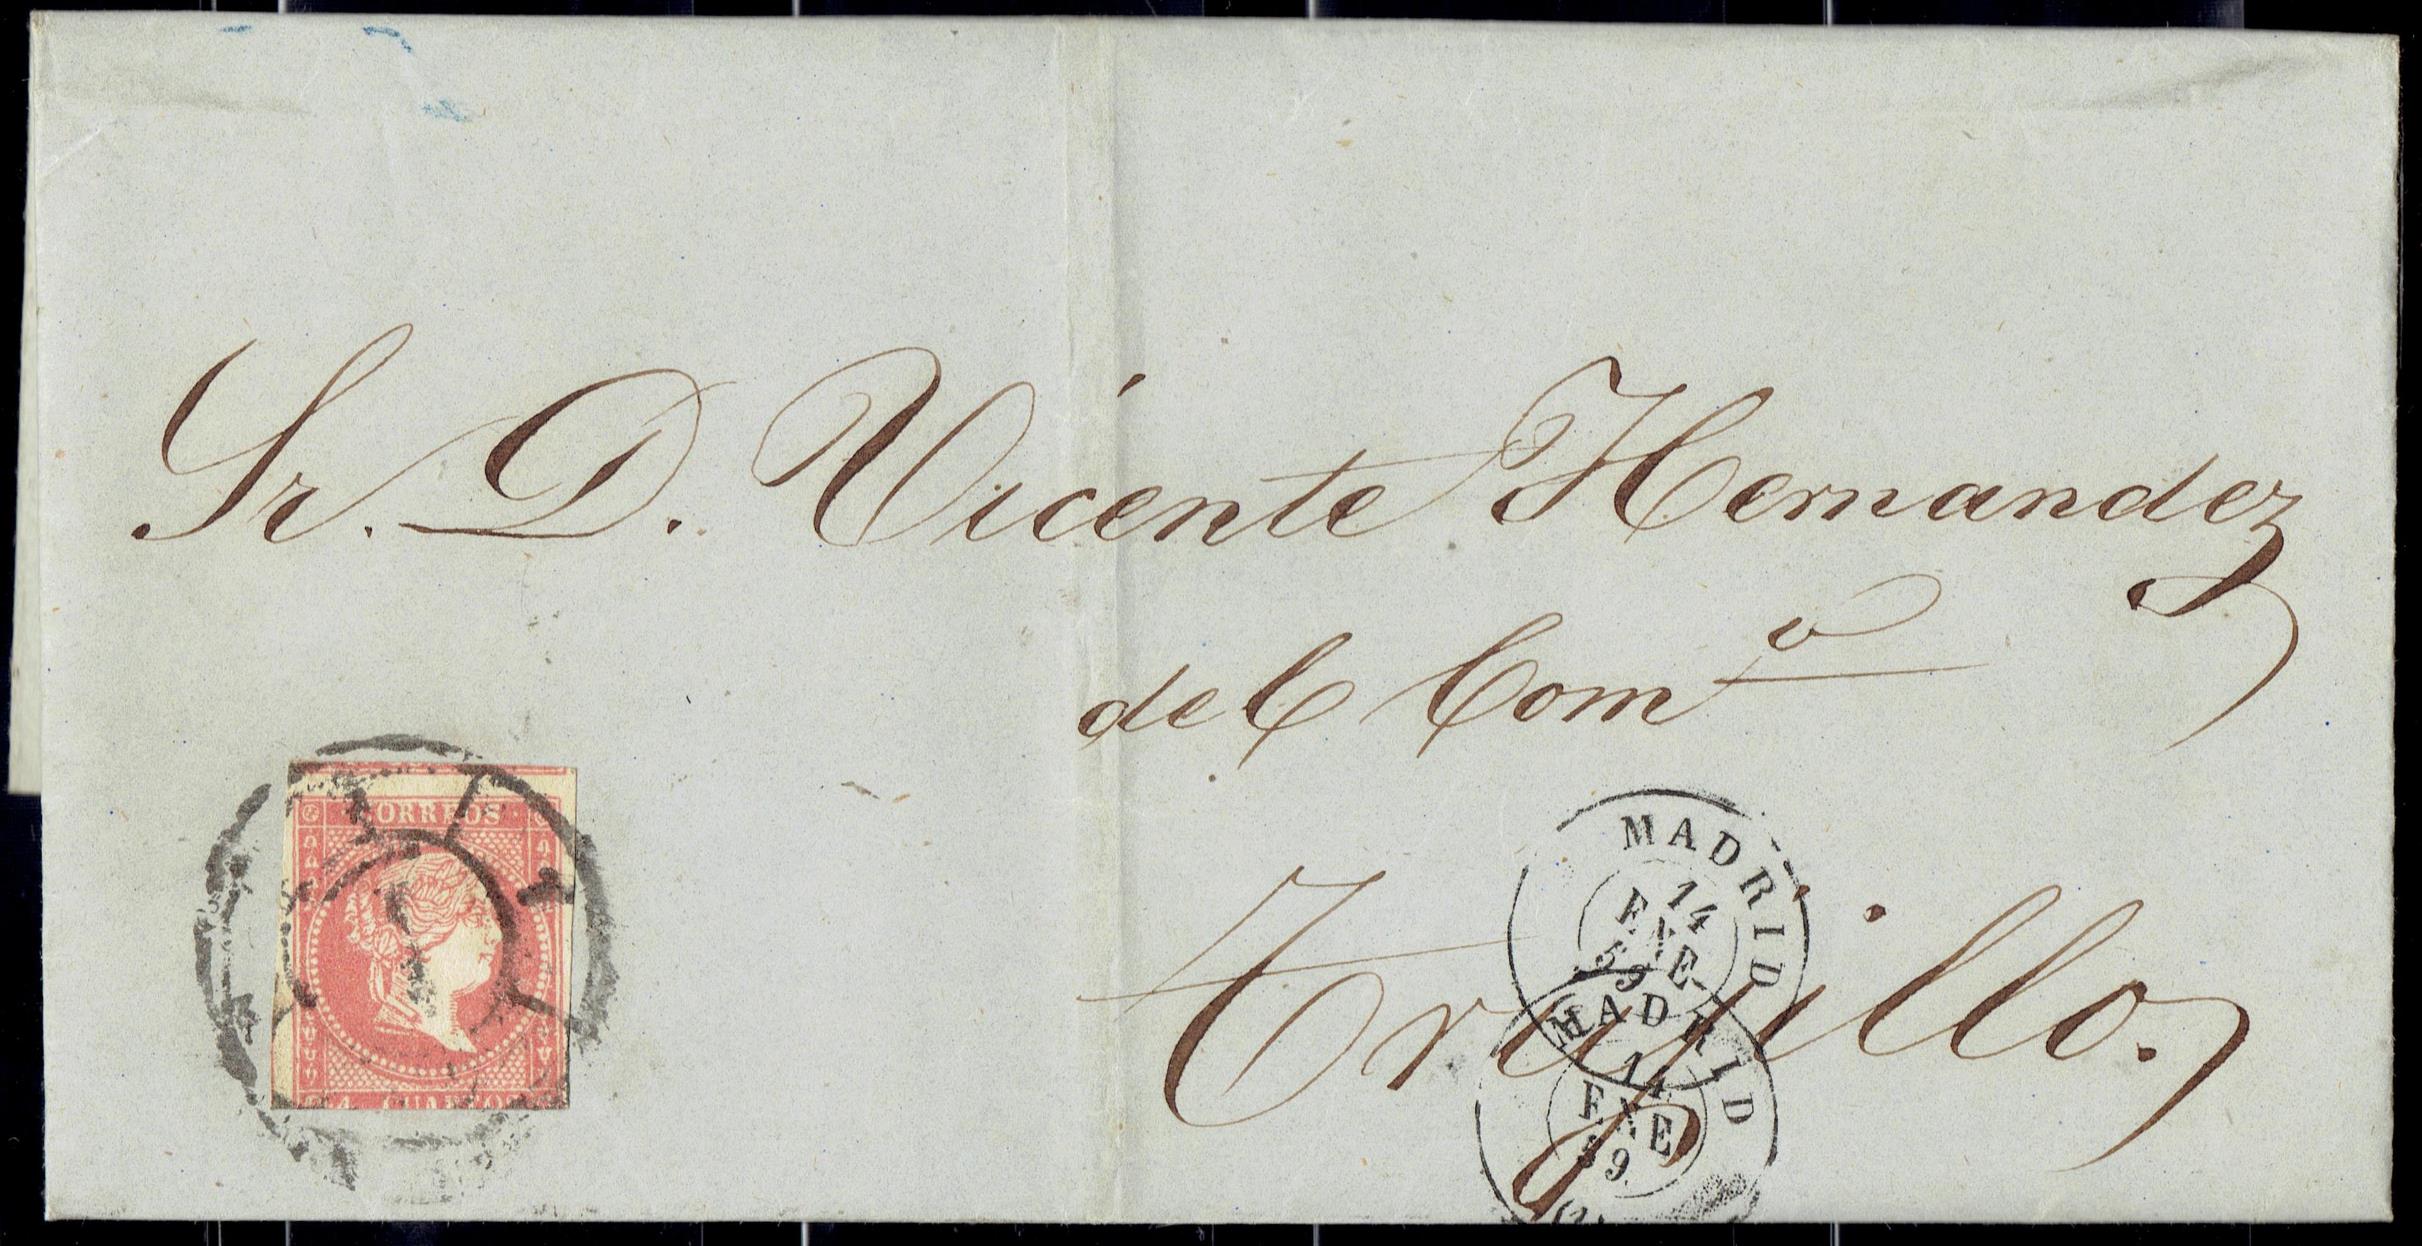 Sr. D. Vicente Hernandez
del Comº
Trujillo.
CORREOS
4 CUARTOS
MADRID
14
ENE
59
MADRID
14
ENE
59.